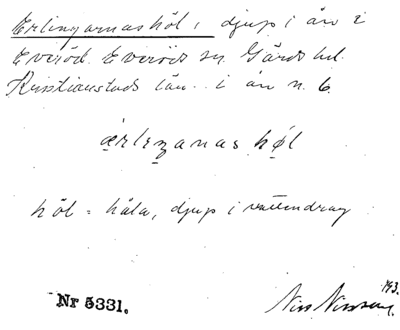 Erlingarnas höl, djup i ån i
Everöd. Everöds sn. Gärds hd.
Kristianstads län. i ån n. 6.
ærlinganas høl
höl = håla, djup i vattendrag
Nr 5331.
Nils Nilsson